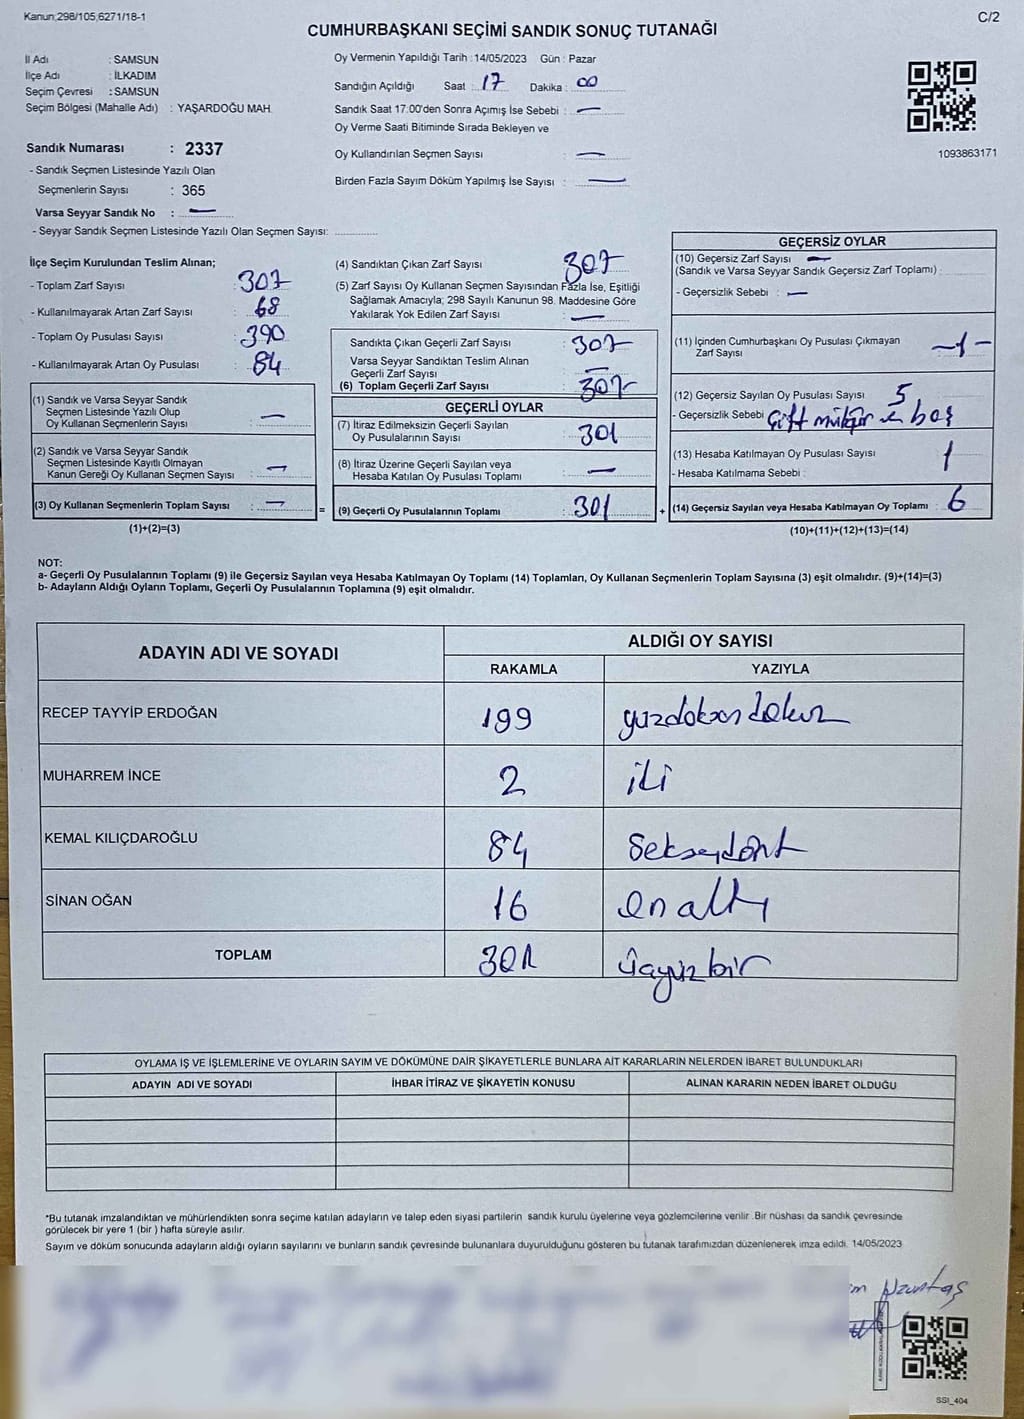 Kanun;298/105,6271/18-1
C/2
CUMHURBAŞKANI SEÇİMİ SANDIK SONUÇ TUTANAĞI
İl Adı : SAMSUN
İlçe Adı : İLKADIM
Seçim Çevresi : SAMSUN
Seçim Bölgesi (Mahalle Adı) : YAŞARDOĞU MAH.
Sandık Numarası : 2337
- Sandık Seçmen Listesinde Yazılı Olan
Seçmenlerin Sayısı : 365
Varsa Seyyar Sandık No : —
- Seyyar Sandık Seçmen Listesinde Yazılı Olan Seçmen Sayısı:
Oy Vermenin Yapıldığı Tarih : 14/05/2023 Gün : Pazar
Sandığın Açıldığı Saat : 17 Dakika : 00
Sandık Saat 17:00'den Sonra Açımış İse Sebebi : —
Oy Verme Saati Bitiminde Sırada Bekleyen ve
Oy Kullandırılan Seçmen Sayısı : —
Birden Fazla Sayım Döküm Yapılmış İse Sayısı : —
1093863171
İlçe Seçim Kurulundan Teslim Alınan;
- Toplam Zarf Sayısı : 307
- Kullanılmayarak Artan Zarf Sayısı : 68
- Toplam Oy Pusulası Sayısı : 390
- Kullanılmayarak Artan Oy Pusulası : 84
(1) Sandık ve Varsa Seyyar Sandık
Seçmen Listesinde Yazılı Olup
Oy Kullanan Seçmenlerin Sayısı : —
(2) Sandık ve Varsa Seyyar Sandık
Seçmen Listesinde Kayıtlı Olmayan
Kanun Gereği Oy Kullanan Seçmen Sayısı : —
(3) Oy Kullanan Seçmenlerin Toplam Sayısı : —
(1)+(2)=(3)
(4) Sandıktan Çıkan Zarf Sayısı : 307
(5) Zarf Sayısı Oy Kullanan Seçmen Sayısından Fazla İse, Eşitliği
Sağlamak Amacıyla; 298 Sayılı Kanunun 98. Maddesine Göre
Yakılarak Yok Edilen Zarf Sayısı : —
Sandıkta Çıkan Geçerli Zarf Sayısı : 307
Varsa Seyyar Sandıktan Teslim Alınan
Geçerli Zarf Sayısı : —
(6) Toplam Geçerli Zarf Sayısı : 307
=
GEÇERLİ OYLAR
(7) İtiraz Edilmeksizin Geçerli Sayılan
Oy Pusulalarının Sayısı : 301
(8) İtiraz Üzerine Geçerli Sayılan veya
Hesaba Katılan Oy Pusulası Toplamı : —
(9) Geçerli Oy Pusulalarının Toplamı : 301
+
GEÇERSİZ OYLAR
(10) Geçersiz Zarf Sayısı —
(Sandık ve Varsa Seyyar Sandık Geçersiz Zarf Toplamı) :
- Geçersizlik Sebebi : —
(11) İçinden Cumhurbaşkanı Oy Pusulası Çıkmayan
Zarf Sayısı — 1 —
(12) Geçersiz Sayılan Oy Pusulası Sayısı 5
- Geçersizlik Sebebi Çift mühür ve boş
(13) Hesaba Katılmayan Oy Pusulası Sayısı 1
- Hesaba Katılmama Sebebi :
(14) Geçersiz Sayılan veya Hesaba Katılmayan Oy Toplamı : 6
(10)+(11)+(12)+(13)=(14)
NOT:
a- Geçerli Oy Pusulalarının Toplamı (9) ile Geçersiz Sayılan veya Hesaba Katılmayan Oy Toplamı (14) Toplamları, Oy Kullanan Seçmenlerin Toplam Sayısına (3) eşit olmalıdır. (9)+(14)=(3)
b- Adayların Aldığı Oyların Toplamı, Geçerli Oy Pusulalarının Toplamına (9) eşit olmalıdır.
ADAYIN ADI VE SOYADI
ALDIĞI OY SAYISI
RAKAMLA YAZIYLA
RECEP TAYYİP ERDOĞAN 199 yüzdoksandokuz
MUHARREM İNCE 2 iki
KEMAL KILIÇDAROĞLU 84 seksendört
SİNAN OĞAN 16 onaltı
TOPLAM 301 üçyüzbir
OYLAMA İŞ VE İŞLEMLERİNE VE OYLARIN SAYIM VE DÖKÜMÜNE DAİR ŞİKAYETLERLE BUNLARA AİT KARARLARIN NELERDEN İBARET BULUNDUKLARI
ADAYIN ADI VE SOYADI İHBAR İTİRAZ VE ŞİKAYETİN KONUSU ALINAN KARARIN NEDEN İBARET OLDUĞU
*Bu tutanak imzalandıktan ve mühürlendikten sonra seçime katılan adayların ve talep eden siyasi partilerin sandık kurulu üyelerine veya gözlemcilerine verilir. Bir nüshası da sandık çevresinde
görülecek bir yere 1 (bir ) hafta süreyle asılır.
Sayım ve döküm sonucunda adayların aldığı oyların sayılarını ve bunların sandık çevresinde bulunanlara duyurulduğunu gösteren bu tutanak tarafımızdan düzenlenerek imza edildi. 14/05/2023
SSI_404